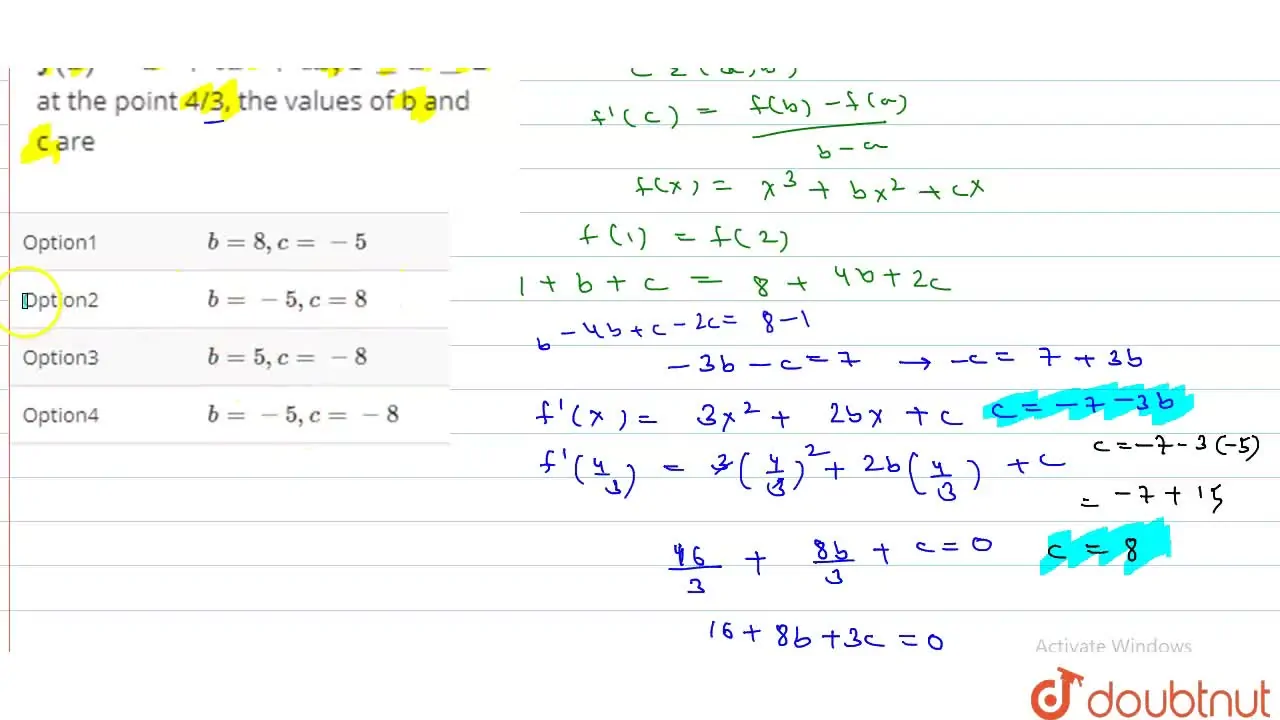 at the point 4/3, the values of b and
c are
Option1 b = 8, c = −5
Option2 b = −5, c = 8
Option3 b = 5, c = −8
Option4 b = −5, c = −8
f'(c) = f(b) − f(a) / b − a
f(x) = x³ + bx² + cx
f(1) = f(2)
1 + b + c = 8 + 4b + 2c
b − 4b + c − 2c = 8 − 1
−3b − c = 7 → −c = 7 + 3b
f'(x) = 3x² + 2bx + c
c = −7 − 3b
c = −7 − 3(−5)
f'(4/3) = 3(4/3)² + 2b(4/3) + c
= −7 + 15
16/3 + 8b/3 + c = 0
c = 8
16 + 8b + 3c = 0
Activate Windows
doubtnut